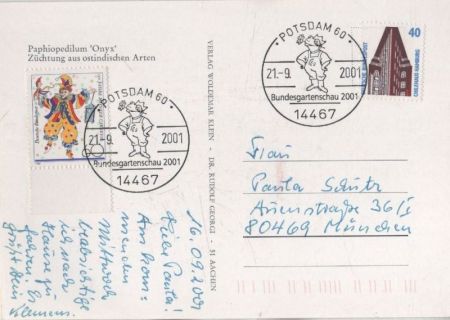 Paphiopedilum 'Onyx'
Züchtung aus ostindischen Arten
VERLAG WOLDEMAR KLEIN · DR. RUDOLF GEORGI · 51 AACHEN
POTSDAM 60
21.-9. 2001
Bundesgartenschau 2001
14467
POTSDAM 60
21.-9. 2001
Bundesgartenschau 2001
14467
40
CHILEHAUS HAMBURG
16.09.2001
Liebe Paula!
Am kom-
menden
Mittwoch
beabsichtige
ich nach
Hause zu
fahren. Es
grüßt Dein
Klemens.
Frau
Paula Schütz
Auenstraße 36/I
80469 München